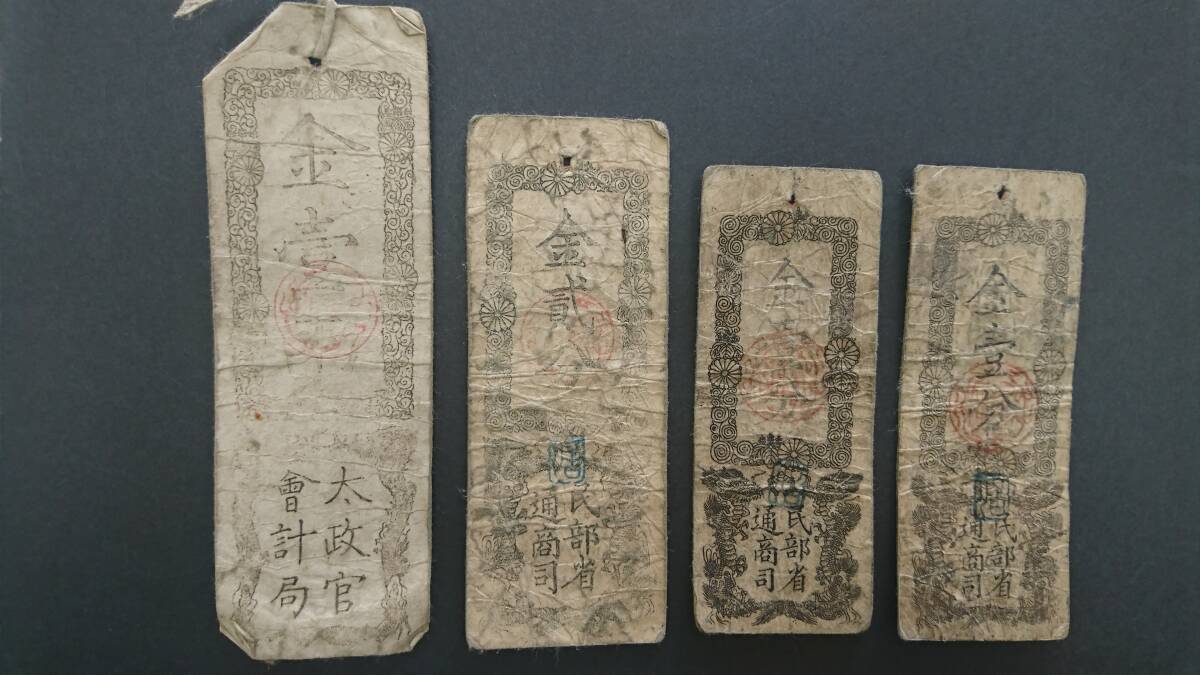 金壹兩
太政官
會計局
金貳分
民部省
通商司
金壹分
民部省
通商司
金壹分
民部省
通商司